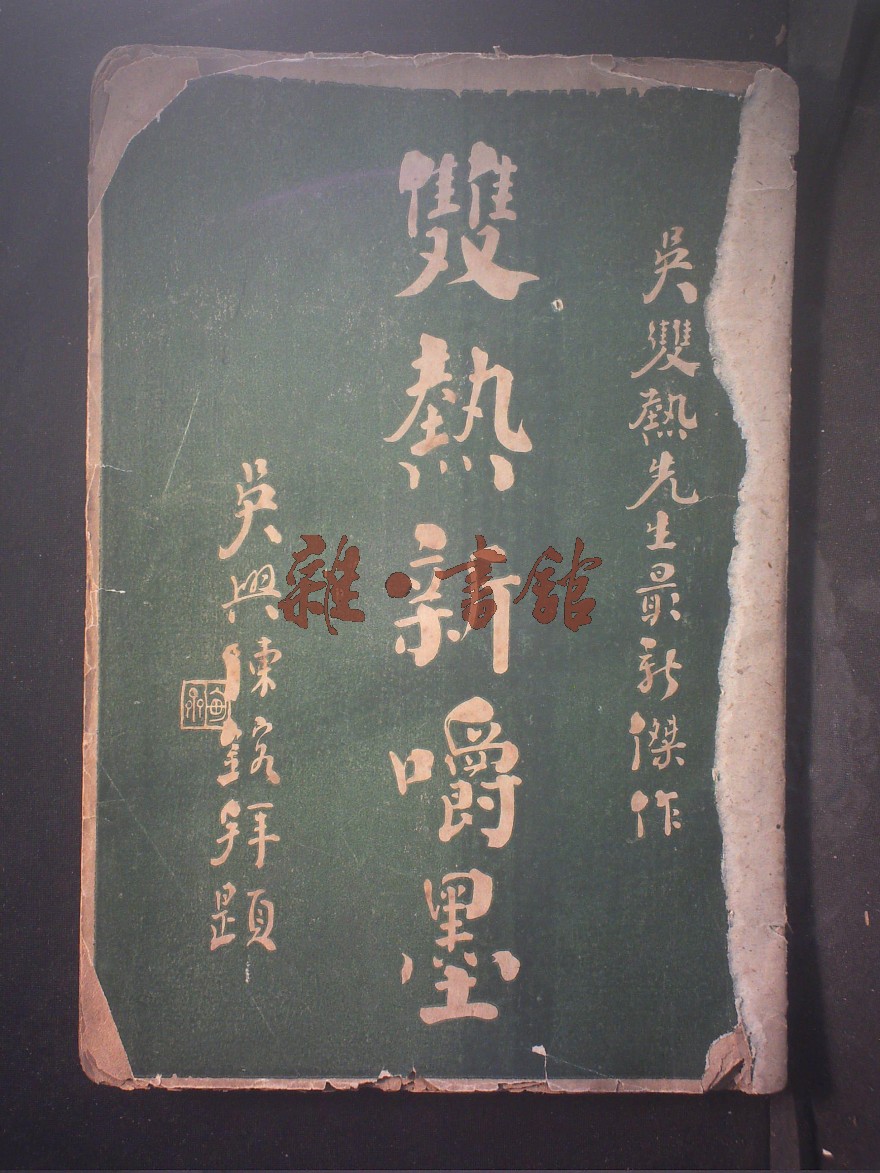 吳雙熱先生最新傑作
雙熱新嚼墨
吳興陳鎔拜題
雜·書館